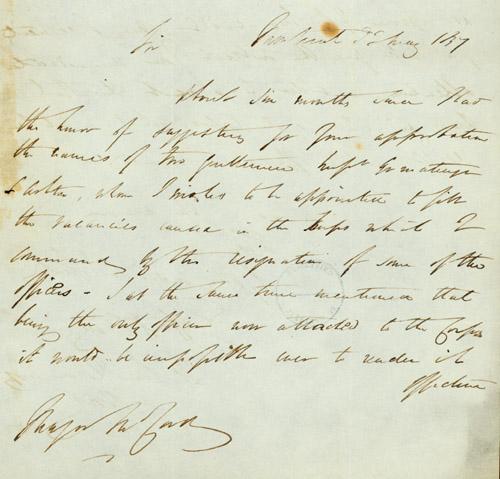 Sir
May 1837
About six months since I had
the honor of suggesting for your approbation
the names of two gentlemen
whom I wished to be appointed to fill
the vacancies caused in the Corps which I
command by the resignation of some of the
officers - I at the same time mentioned that
being the only officer now attached to the Corps
it would be impossible ever to render it
effective
Major McCord